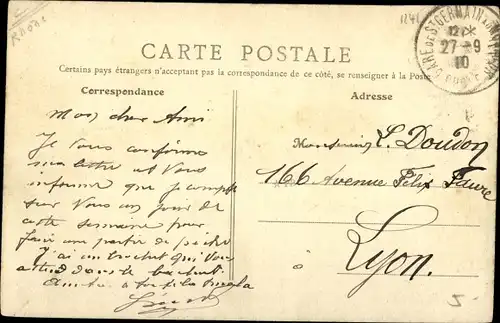 Rhône
1241
CARTE POSTALE
Certains pays étrangers n'acceptant pas la correspondance de ce côté, se renseigner à la Poste
GARE DE ST GERMAIN AU MONT D'OR
12
27-9
10
RHONE
Correspondance
Adresse
Mon cher Ami
Je Vous confirme
ma lettre et Vous
informe que je compte
sur Vous un jour de
cette semaine pour
faire une partie de pêche
j'ai un brochet qui Vous
attend dans le
Monsieur L. Doudon
166 Avenue Félix Faure
à Lyon.